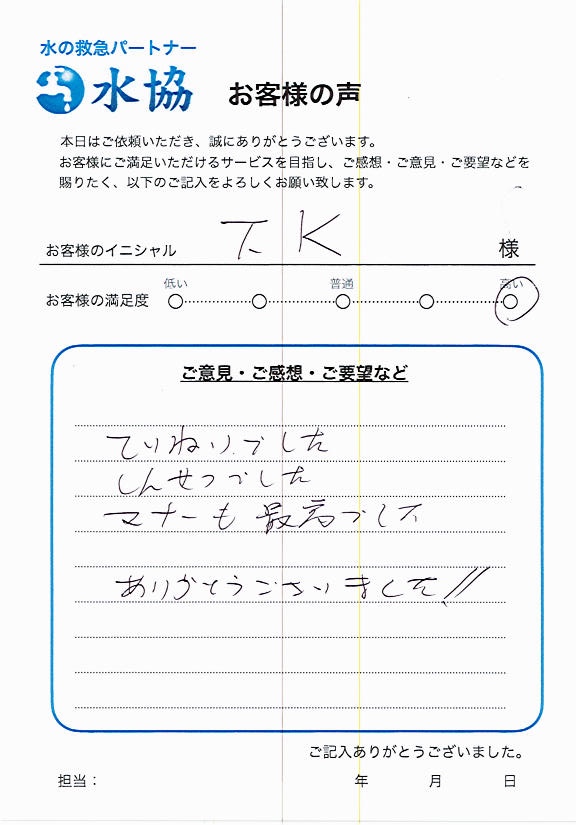 水の救急パートナー
水協 お客様の声
本日はご依頼いただき、誠にありがとうございます。
お客様にご満足いただけるサービスを目指し、ご感想・ご意見・ご要望などを
賜りたく、以下のご記入をよろしくお願い致します。
お客様のイニシャル T. K 様
低い 普通 高い
お客様の満足度
ご意見・ご感想・ご要望など
ていねいでした
しんせつでした
マナーも最高でした
ありがとうございました!!
ご記入ありがとうございました。
担当： 年 月 日